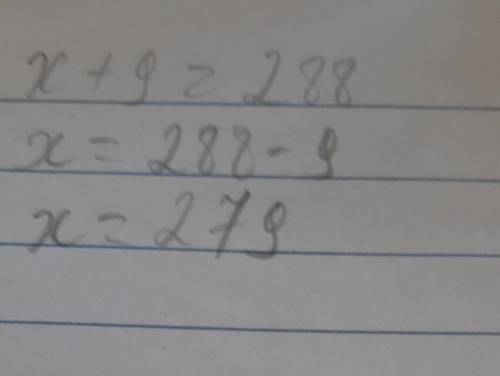 x + 9 = 288
x = 288 - 9
x = 279